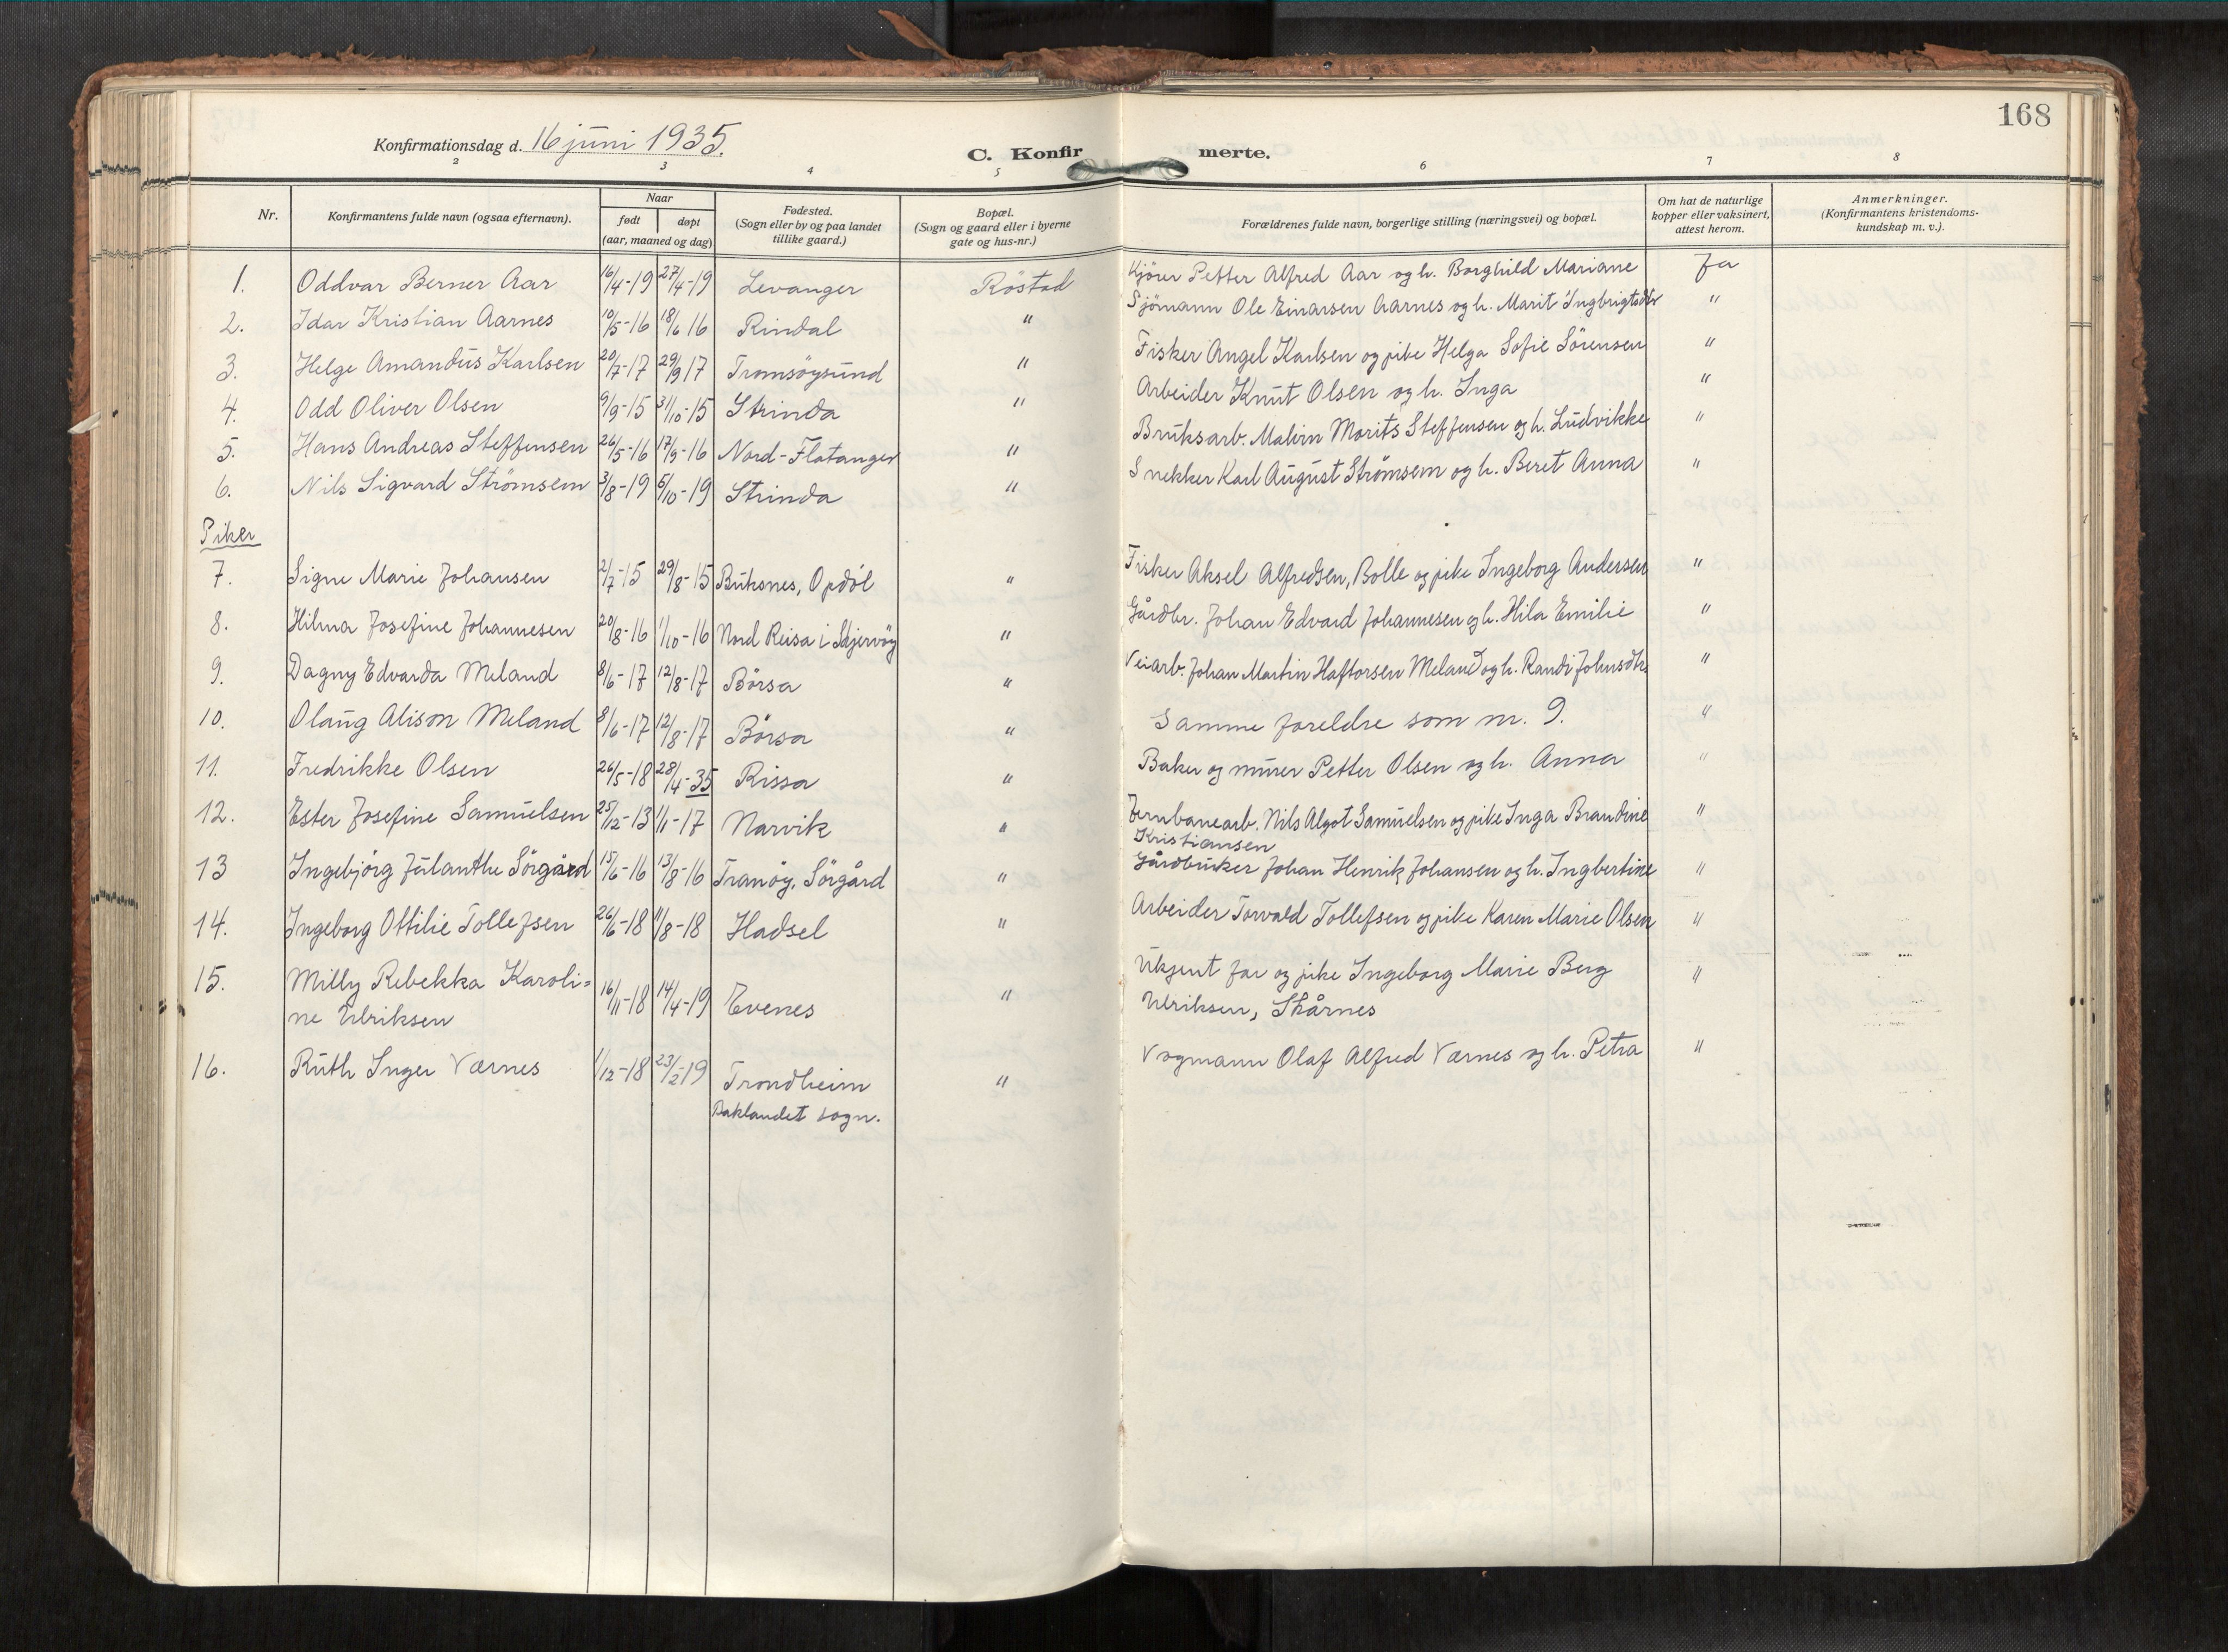 168
Konfirmationsdag d. 16 juni 1935.
C. Konfirmerte.
2 3 4 5 6 7 8
Nr. | Konfirmantens fulde navn (ogsaa efternavn). | Naar født | døpt (aar, maaned og dag) | Fødested. (Sogn eller by og paa landet tillike gaard.) | Bopæl. (Sogn og gaard eller i byerne gate og hus-nr.) | Forældrenes fulde navn, borgerlige stilling (næringsvei) og bopæl. | Om hat de naturlige kopper eller vaksinert, attest herom. | Anmerkninger. (Konfirmantens kristendoms-kundskap m. v.).
1. Oddvar Berner Aar 16/4-19 27/4-19 Levanger Röstad Kjörer Petter Alfred Aar og h. Borghild Mariane Ja
2. Idar Kristian Aarnes 10/5-16 18/6 16 Rindal " Sjömann Ole Einarsen Aarnes og h. Marit Ingbrigtsdtr "
3. Helge Amandus Karlsen 20/7-17 29/9 17 Tromsöysund " Fisker Angel Karlsen og pike Helga Sofie Sörensen "
4. Odd Oliver Olsen 9/9-15 31/10-15 Strinda " Arbeider Knut Olsen og h. Inga "
5. Hans Andreas Steffensen 26/5-16 17/9-16 Nord-Flatanger " Bruksarb. Malvin Morits Steffensen og h. Ludvikke "
6. Nils Sigvard Strömsem 3/8-19 5/10-19 Strinda " Snekker Karl August Strömsem og h. Beret Anna "
Piker
7. Signe Marie Johansen 2/7-15 29/8-15 Buksnes, Opdöl " Fisker Aksel Alfredsen, Bolle og pike Ingeborg Andersen "
8. Hilma Josefine Johannesen 20/8-16 1/10-16 Nord Reisa i Skjervöy " Gårdbr. Johan Edvard Johannesen og h. Hila Emilie "
9. Dagny Edvarda Meland 8/6-17 12/8-17 Börsa " Veiarb. Johan Martin Haftorsen Meland og h. Randi Johnsdtr. "
10. Olaug Alison Meland 8/6-17 12/8-17 Börsa " Samme foreldre som nr. 9. "
11. Fredrikke Olsen 26/5-18 28/4-35 Rissa " Baker og murer Petter Olsen og h. Anna "
12. Ester Josefine Samuelsen 25/12-13 1/1-17 Narvik " Jernbanearb. Nils Algot Samuelsen og pike Inga Brandine
Kristiansen "
13 Ingebjörg Julanthe Sörgård 15/6-16 13/8-16 Tranöy, Sörgård " Gårdbruker Johan Henrik Johansen og h. Ingbertine "
14. Ingeborg Ottilie Tollefsen 26/6-18 11/8-18 Hadsel " Arbeider Torvald Tollefsen og pike Karen Marie Olsen "
15. Milly Rebekka Karoli=
ne Ulriksen 16/11-18 14/4-19 Evenes " Ukjent far og pike Ingeborg Marie Berg
Ulriksen, Skårnes "
16. Ruth Inger Værnes 1/12-18 23/2-19 Trondheim " Vognmann Olaf Alfred Værnes og h. Petra "
Baklandet sogn.